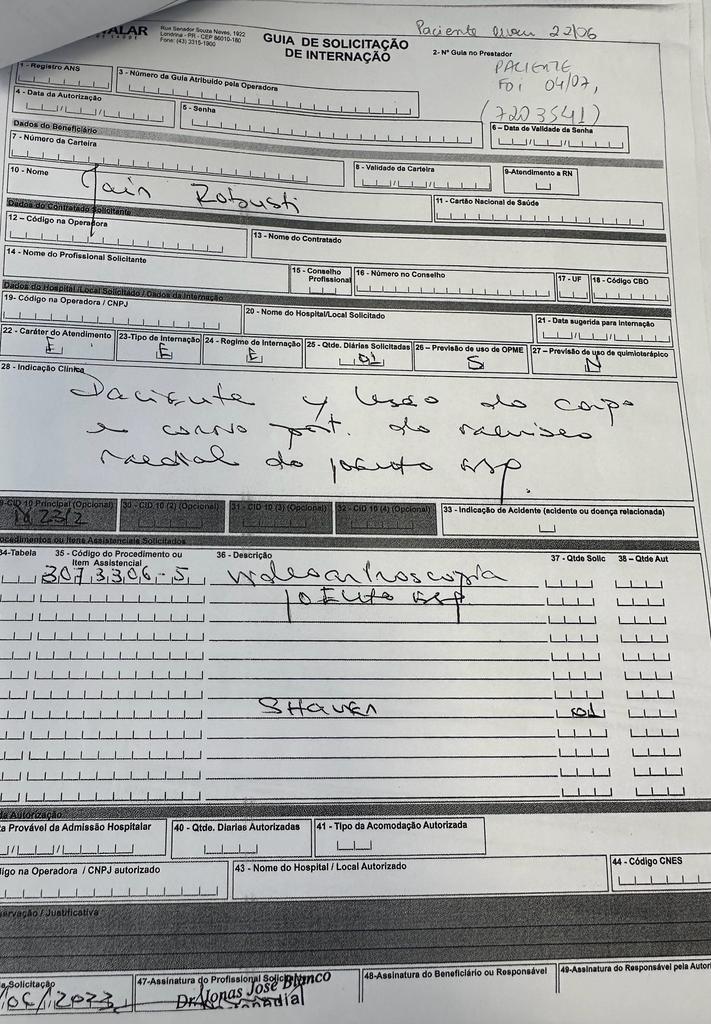 ALAR
Rua Senador Souza Naves, 1922
Londrina - PR - CEP 86010-160
Fone: (43) 3315-1900
GUIA DE SOLICITAÇÃO
DE INTERNAÇÃO
Paciente 22/06
2- Nº Guia no Prestador
PACIENTE
FOI 04/07,
(7203541)
1 - Registro ANS
3 - Número da Guia Atribuído pela Operadora
4 - Data da Autorização
5 - Senha
6 – Data de Validade da Senha
Dados do Beneficiário
7 - Número da Carteira
8 - Validade da Carteira
9-Atendimento a RN
10 - Nome
Jair Robusti
11 - Cartão Nacional de Saúde
Dados do Contratado Solicitante
12 – Código na Operadora
13 - Nome do Contratado
14 - Nome do Profissional Solicitante
15 - Conselho
Profissional
16 - Número no Conselho
17 - UF
18 - Código CBO
Dados do Hospital /Local Solicitado / Dados da Internação
19- Código na Operadora / CNPJ
20 - Nome do Hospital/Local Solicitado
21 - Data sugerida para internação
22 - Caráter do Atendimento
E
23-Tipo de Internação
E
24 - Regime de Internação
E
25 - Qtde. Diárias Solicitadas
01
26 – Previsão de uso de OPME
S
27 – Previsão de uso de quimioterápico
N
28 - Indicação Clínica
Paciente c/ lesão do corpo
e corno post. do menisco
medial do joelho esp.
9-CID 10 Principal (Opcional)
M 23/2
30 - CID 10 (2) (Opcional)
31 - CID 10 (3) (Opcional)
32 - CID 10 (4) (Opcional)
33 - Indicação de Acidente (acidente ou doença relacionada)
ocedimentos ou Itens Assistenciais Solicitados
34-Tabela
35 - Código do Procedimento ou
Item Assistencial
36 – Descrição
37 - Qtde Solic
38 – Qtde Aut
3073306-5 videoartroscopia
joelho esp
SHAVER 01
da Autorização
a Provável da Admissão Hospitalar
40 - Qtde. Diarias Autorizadas
41 - Tipo da Acomodação Autorizada
digo na Operadora / CNPJ autorizado
43 - Nome do Hospital / Local Autorizado
44 - Código CNES
servação / Justificativa
a Solicitação
/06/2023
47-Assinatura do Profissional Solic
Dr. Jonas José Blanco
48-Assinatura do Beneficiário ou Responsável
49-Assinatura do Responsável pela Autori